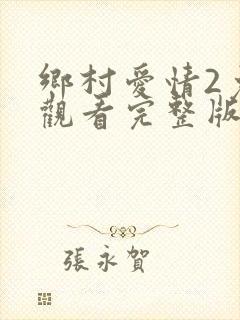 鄉村愛情2
觀看完整版
張永賀